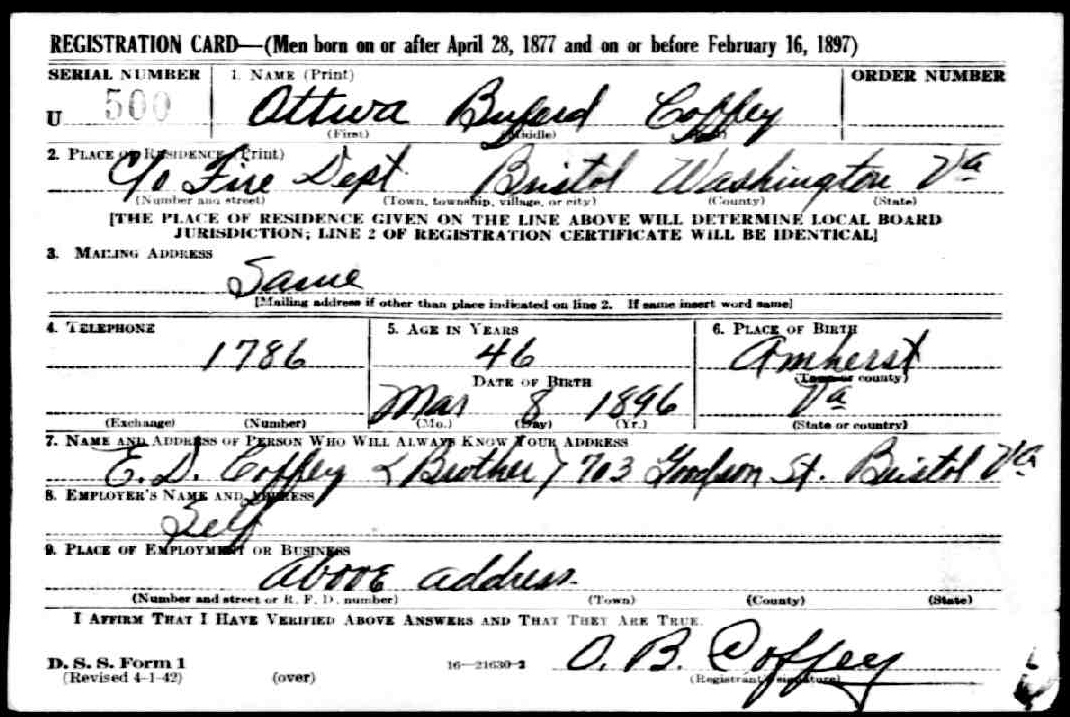 REGISTRATION CARD—(Men born on or after April 28, 1877 and on or before February 16, 1897)
SERIAL NUMBER 1. NAME (Print) ORDER NUMBER
U 500 Ottwa Buford Coffey
(First) (Middle) (Last)
2. PLACE OF RESIDENCE (Print)
C/o Fire Dept Bristol Washington Va
(Number and street) (Town, township, village, or city) (County) (State)
[THE PLACE OF RESIDENCE GIVEN ON THE LINE ABOVE WILL DETERMINE LOCAL BOARD
JURISDICTION; LINE 2 OF REGISTRATION CERTIFICATE WILL BE IDENTICAL]
3. MAILING ADDRESS
Same
[Mailing address if other than place indicated on line 2. If same insert word same]
4. TELEPHONE 5. AGE IN YEARS 6. PLACE OF BIRTH
1786 46 Amherst
DATE OF BIRTH (Town or county)
Mar 8 1896 Va
(Exchange) (Number) (Mo.) (Day) (Yr.) (State or country)
7. NAME AND ADDRESS OF PERSON WHO WILL ALWAYS KNOW YOUR ADDRESS
E. D. Coffey (Brother) 703 Goodson St. Bristol Va
8. EMPLOYER'S NAME AND ADDRESS
Self
9. PLACE OF EMPLOYMENT OR BUSINESS
Above address
(Number and street or R. F. D. number) (Town) (County) (State)
I AFFIRM THAT I HAVE VERIFIED ABOVE ANSWERS AND THAT THEY ARE TRUE.
D. S. S. Form 1 16—21630-2 O. B. Coffey
(Revised 4-1-42) (over) (Registrant's signature)